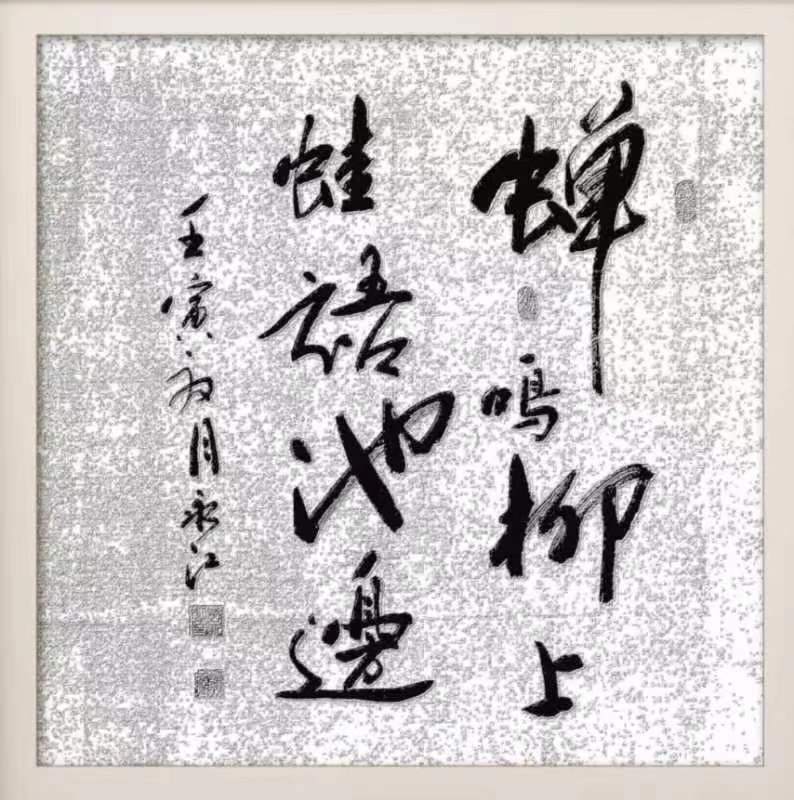 蟬鳴柳上
蛙語池邊
壬寅初月永江